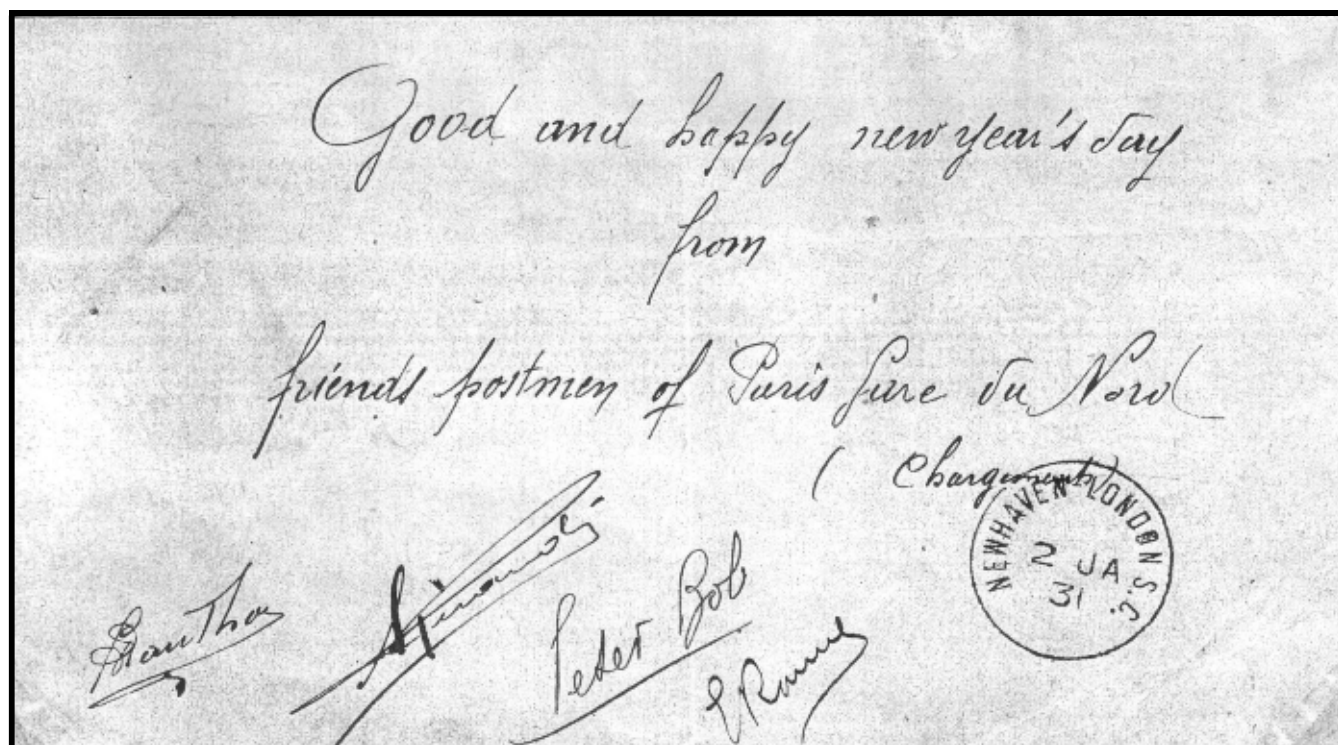 Good and happy new year's day
from
friends postmen of Paris Gare du Nord
( Chargements)
NEWHAVEN LONDON S.C.
2 JA
31
Peter Bob